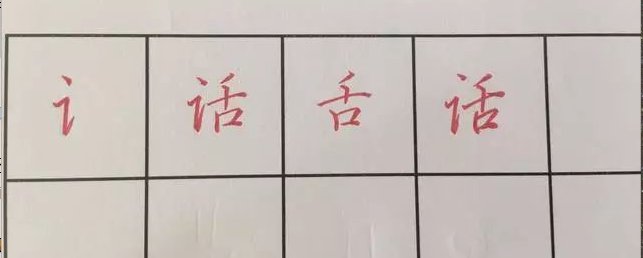 讠 话 舌 话